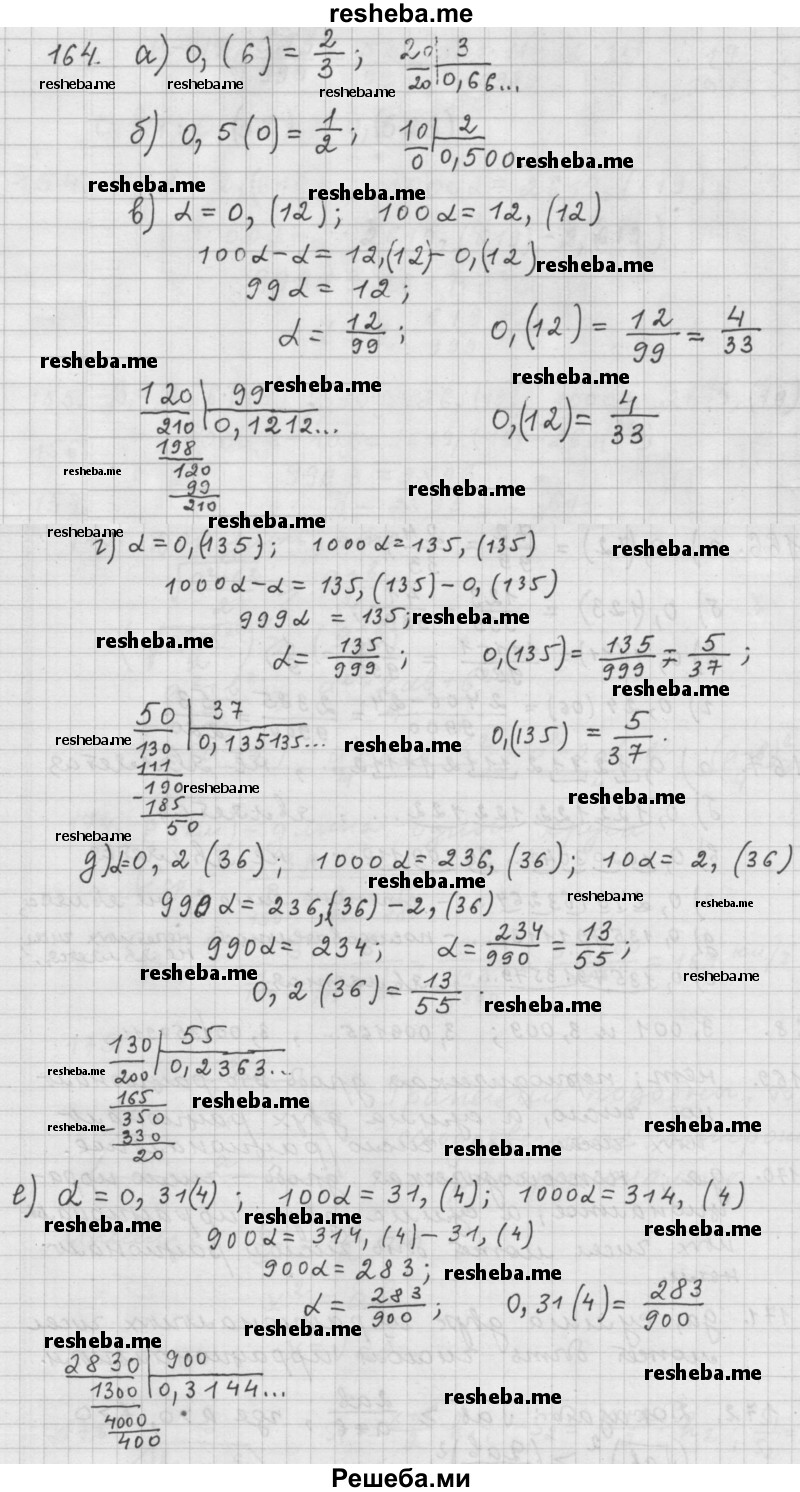 resheba.me
164. а) 0,(6) = 2/3; 20 | 3
resheba.me resheba.me 20 | 0,66... resheba.me
б) 0,5(0) = 1/2; 10 | 2
0 | 0,500 resheba.me
resheba.me resheba.me
в) α = 0,(12); 100α = 12,(12)
100α - α = 12,(12) - 0,(12) resheba.me
99α = 12;
α = 12/99; 0,(12) = 12/99 = 4/33
resheba.me resheba.me resheba.me
120 | 99 0,(12) = 4/33
210 | 0,1212...
198
resheba.me 120 resheba.me
99
210
resheba.me resheba.me
г) α = 0,(135); 1000α = 135,(135) resheba.me
1000α - α = 135,(135) - 0,(135)
999α = 135; resheba.me
resheba.me
α = 135/999; 0,(135) = 135/999 = 5/37;
resheba.me
50 | 37 0,(135) = 5/37.
resheba.me 130 | 0,135135... resheba.me
111
190 resheba.me
- 185 resheba.me
50
resheba.me
д) α = 0,2(36); 1000α = 236,(36); 10α = 2,(36)
resheba.me
990α = 236,(36) - 2,(36) resheba.me resheba.me
990α = 234; α = 234/990 = 13/55;
resheba.me resheba.me
0,2(36) = 13/55. resheba.me
130 | 55
resheba.me 200 | 0,2363...
165 resheba.me
350
resheba.me - 330 resheba.me
20 resheba.me
е) α = 0,31(4); 100α = 31,(4); 1000α = 314,(4)
resheba.me resheba.me resheba.me
900α = 314,(4) - 31,(4)
900α = 283; resheba.me
α = 283/900; 0,31(4) = 283/900
resheba.me resheba.me
resheba.me
2830 | 900 resheba.me
1300 | 0,3144... resheba.me
4000
400
resheba.me
Решеба.ми